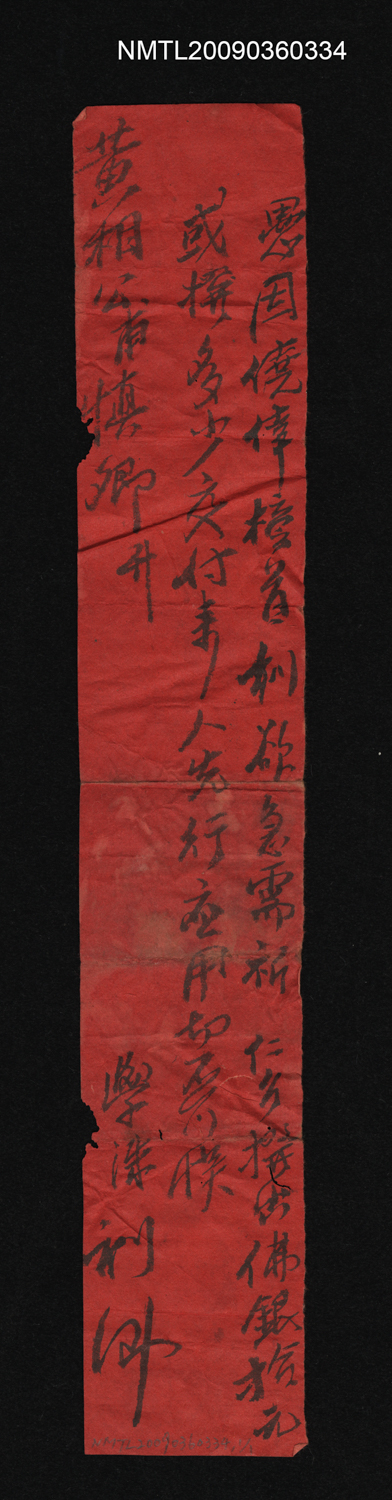 NMTL20090360334
愚因僥倖榜首刻欲急需祈 仁翁撥出佛銀拾元
或撥多少交付來人先行應用切
黃相公甫慎卿升
學海 制 卿